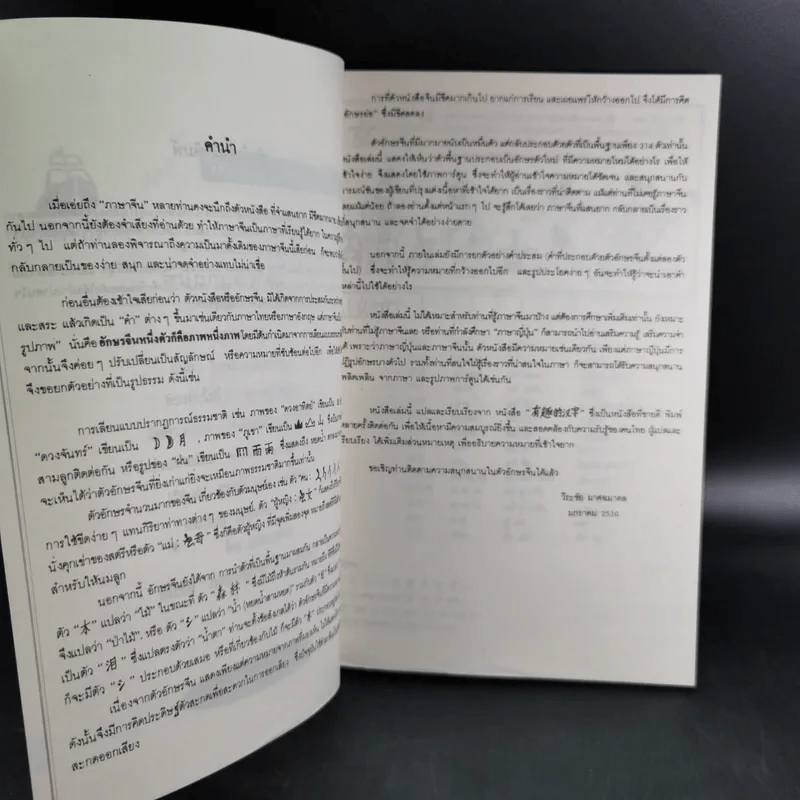 คำนำ
เมื่อเอ่ยถึง "ภาษาจีน" หลายท่านคงจะนึกถึงตัวหนังสือ ที่จำแสนยาก มีขีดมากมาย
กันไป นอกจากนี้ยังต้องจำเสียงที่อ่านด้วย ทำให้ภาษาจีนเป็นภาษาที่เรียนรู้ได้ยาก ในความรู้สึก
ทั่วๆ ไป แต่ถ้าท่านลองพิจารณาถึงความเป็นมาดั้งเดิมของภาษาจีนนี้เสียก่อน ก็จะพบว่า
กลับกลายเป็นของง่าย สนุก และน่าจดจำอย่างแทบไม่น่าเชื่อ
ก่อนอื่นต้องเข้าใจเสียก่อนว่า ตัวหนังสือหรืออักษรจีน มิได้เกิดจากการประสมกัน
และสระ แล้วเกิดเป็น "คำ" ต่างๆ ขึ้นมาเช่นเดียวกับภาษาไทยหรือภาษาอังกฤษ แต่ภาษาจีน
รูปภาพ" นั่นคืออักษรจีนหนึ่งตัวก็คือภาพหนึ่งภาพ โดยมีต้นกำเนิดมาจากการเลียนแบบ
จากนั้นจึงค่อยๆ ปรับเปลี่ยนเป็นสัญลักษณ์ หรือความหมายที่ซับซ้อนต่อไปอีก เพื่อ
จึงขอยกตัวอย่างที่เป็นรูปธรรม ดังนี้เช่น
การเลียนแบบปรากฏการณ์ธรรมชาติ เช่น ภาพของ "ดวงอาทิตย์" เขียนเป็น
"ดวงจันทร์" เขียนเป็น 月, ภาพของ "ภูเขา" เขียนเป็น 山 ซึ่งเป็น
สามลูกติดต่อกัน หรือรูปของ "ฝน" เขียนเป็น 雨 ซึ่งแสดงถึง หยดน้ำ
จะเห็นได้ว่าตัวอักษรจีนที่ยิ่งเก่าแก่ยิ่งจะเหมือนภาพธรรมชาติมากขึ้นเท่านั้น
ตัวอักษรจีนจำนวนมากของจีน เกี่ยวข้องกับตัวมนุษย์เอง เช่น ตัว "คน :
การใช้ขีดง่ายๆ แทนกิริยาท่าทางต่างๆ ของมนุษย์, ตัว "ผู้หญิง : 女" ก็แสดงถึง
นั่งคุกเข่าของสตรีหรือตัว "แม่ : 母" ซึ่งก็คือตัวผู้หญิง ที่มีจุดเพิ่มสองจุด
สำหรับให้นมลูก
นอกจากนี้ อักษรจีนยังได้จาก การนำตัวที่เป็นพื้นฐานมาผสมกัน กลายเป็น
ตัว "木" แปลว่า "ไม้" ในขณะที่ ตัว "森林"
จึงแปลว่า "ป่าไม้", หรือ ตัว "氵" แปลว่า "น้ำ (หยดน้ำสามหยด)" รวมกับตัว
เป็นตัว "泪" ซึ่งแปลตรงตัวว่า "น้ำตา" ท่านจะตั้งข้อสังเกตได้ว่า
ก็จะมีตัว "氵" ประกอบด้วยเสมอ หรือที่เกี่ยวข้องกับไม้ ก็จะมีตัว "木"
เนื่องจากตัวอักษรจีน แสดงเพียงแต่ความหมายจากภาพที่มองเห็น
ดังนั้นจึงมีการคิดประดิษฐ์ตัวสะกดเพื่อสะดวกในการออกเสียง
สะกดออกเสียง
การที่ตัวหนังสือจีนมีขีดมากเกินไป ยากแก่การเรียน และเผยแพร่ให้กว้างออกไป จึงได้มีการคิด
"อักษรย่อ" ซึ่งมีขีดลดลง
ตัวอักษรจีนที่มีมากมายนับเป็นหมื่นตัว แต่กลับประกอบด้วยตัวที่เป็นพื้นฐานเพียง 214 ตัวเท่านั้น
หนังสือเล่มนี้ แสดงให้เห็นว่าตัวพื้นฐานประกอบเป็นอักษรตัวใหม่ ที่มีความหมายใหม่ได้อย่างไร เพื่อให้
เข้าใจง่าย จึงแสดงโดยใช้ภาพการ์ตูน ซึ่งจะทำให้ผู้อ่านเข้าใจความหมายได้ชัดเจน และสนุกสนานกับ
อารมณ์ขันของผู้เขียนที่ปรุงแต่งเนื้อหาที่เข้าใจได้ยาก เป็นเรื่องราวที่น่าติดตาม แม้แต่ท่านที่ไม่เคยรู้ภาษาจีน
เลยแม้แต่น้อย ถ้าลองอ่านตั้งแต่หน้าแรกๆ ไป จะรู้สึกได้เลยว่า ภาษาจีนที่แสนยาก กลับกลายเป็นเรื่องราว
สนุกสนาน และจดจำได้อย่างง่ายดาย
นอกจากนี้ ภายในเล่มยังมีการยกตัวอย่างคำประสม (คำที่ประกอบด้วยตัวอักษรจีนตั้งแต่สองตัว
ขึ้นไป) ซึ่งจะทำให้รู้ความหมายที่กว้างออกไปอีก และรูปประโยคง่ายๆ อันจะทำให้รู้ว่าจะนำเอาคำ
เหล่านี้ไปใช้ได้อย่างไร
หนังสือเล่มนี้ ไม่ได้เหมาะสำหรับท่านที่รู้ภาษาจีนมาบ้าง แต่ต้องการศึกษาเพิ่มเติมเท่านั้น ยังเหมาะ
กับท่านที่ไม่รู้ภาษาจีนเลย หรือท่านที่กำลังศึกษา "ภาษาญี่ปุ่น" ก็สามารถนำไปอ่านเสริมความรู้ เสริมความจำ
ได้ เพราะว่าภาษาญี่ปุ่นและภาษาจีนนั้น ตัวหนังสือมีความหมายเช่นเดียวกัน เพียงแต่ภาษาญี่ปุ่นมีการ
ปฏิรูปอักษรบางตัวไป รวมทั้งท่านที่สนใจใฝ่รู้เรื่องราวที่น่าสนใจในภาษา ก็จะสามารถได้รับความสนุกสนาน
เพลิดเพลิน จากภาษา และรูปภาพการ์ตูนได้เช่นกัน
หนังสือเล่มนี้ แปลและเรียบเรียงจาก หนังสือ "有趣的汉字" ซึ่งเป็นหนังสือที่ขายดี พิมพ์
หลายครั้งติดต่อกัน เพื่อให้เนื้อหามีความสมบูรณ์ยิ่งขึ้น และสอดคล้องกับความรับรู้ของคนไทย ผู้แปลและ
เรียบเรียง ได้เพิ่มเติมส่วนหมายเหตุ เพื่ออธิบายความหมายที่เข้าใจยาก
ขอเชิญท่านติดตามความสนุกสนานในตัวอักษรจีนได้แล้ว
วีระชัย มาศฉมาดล
มกราคม 2530